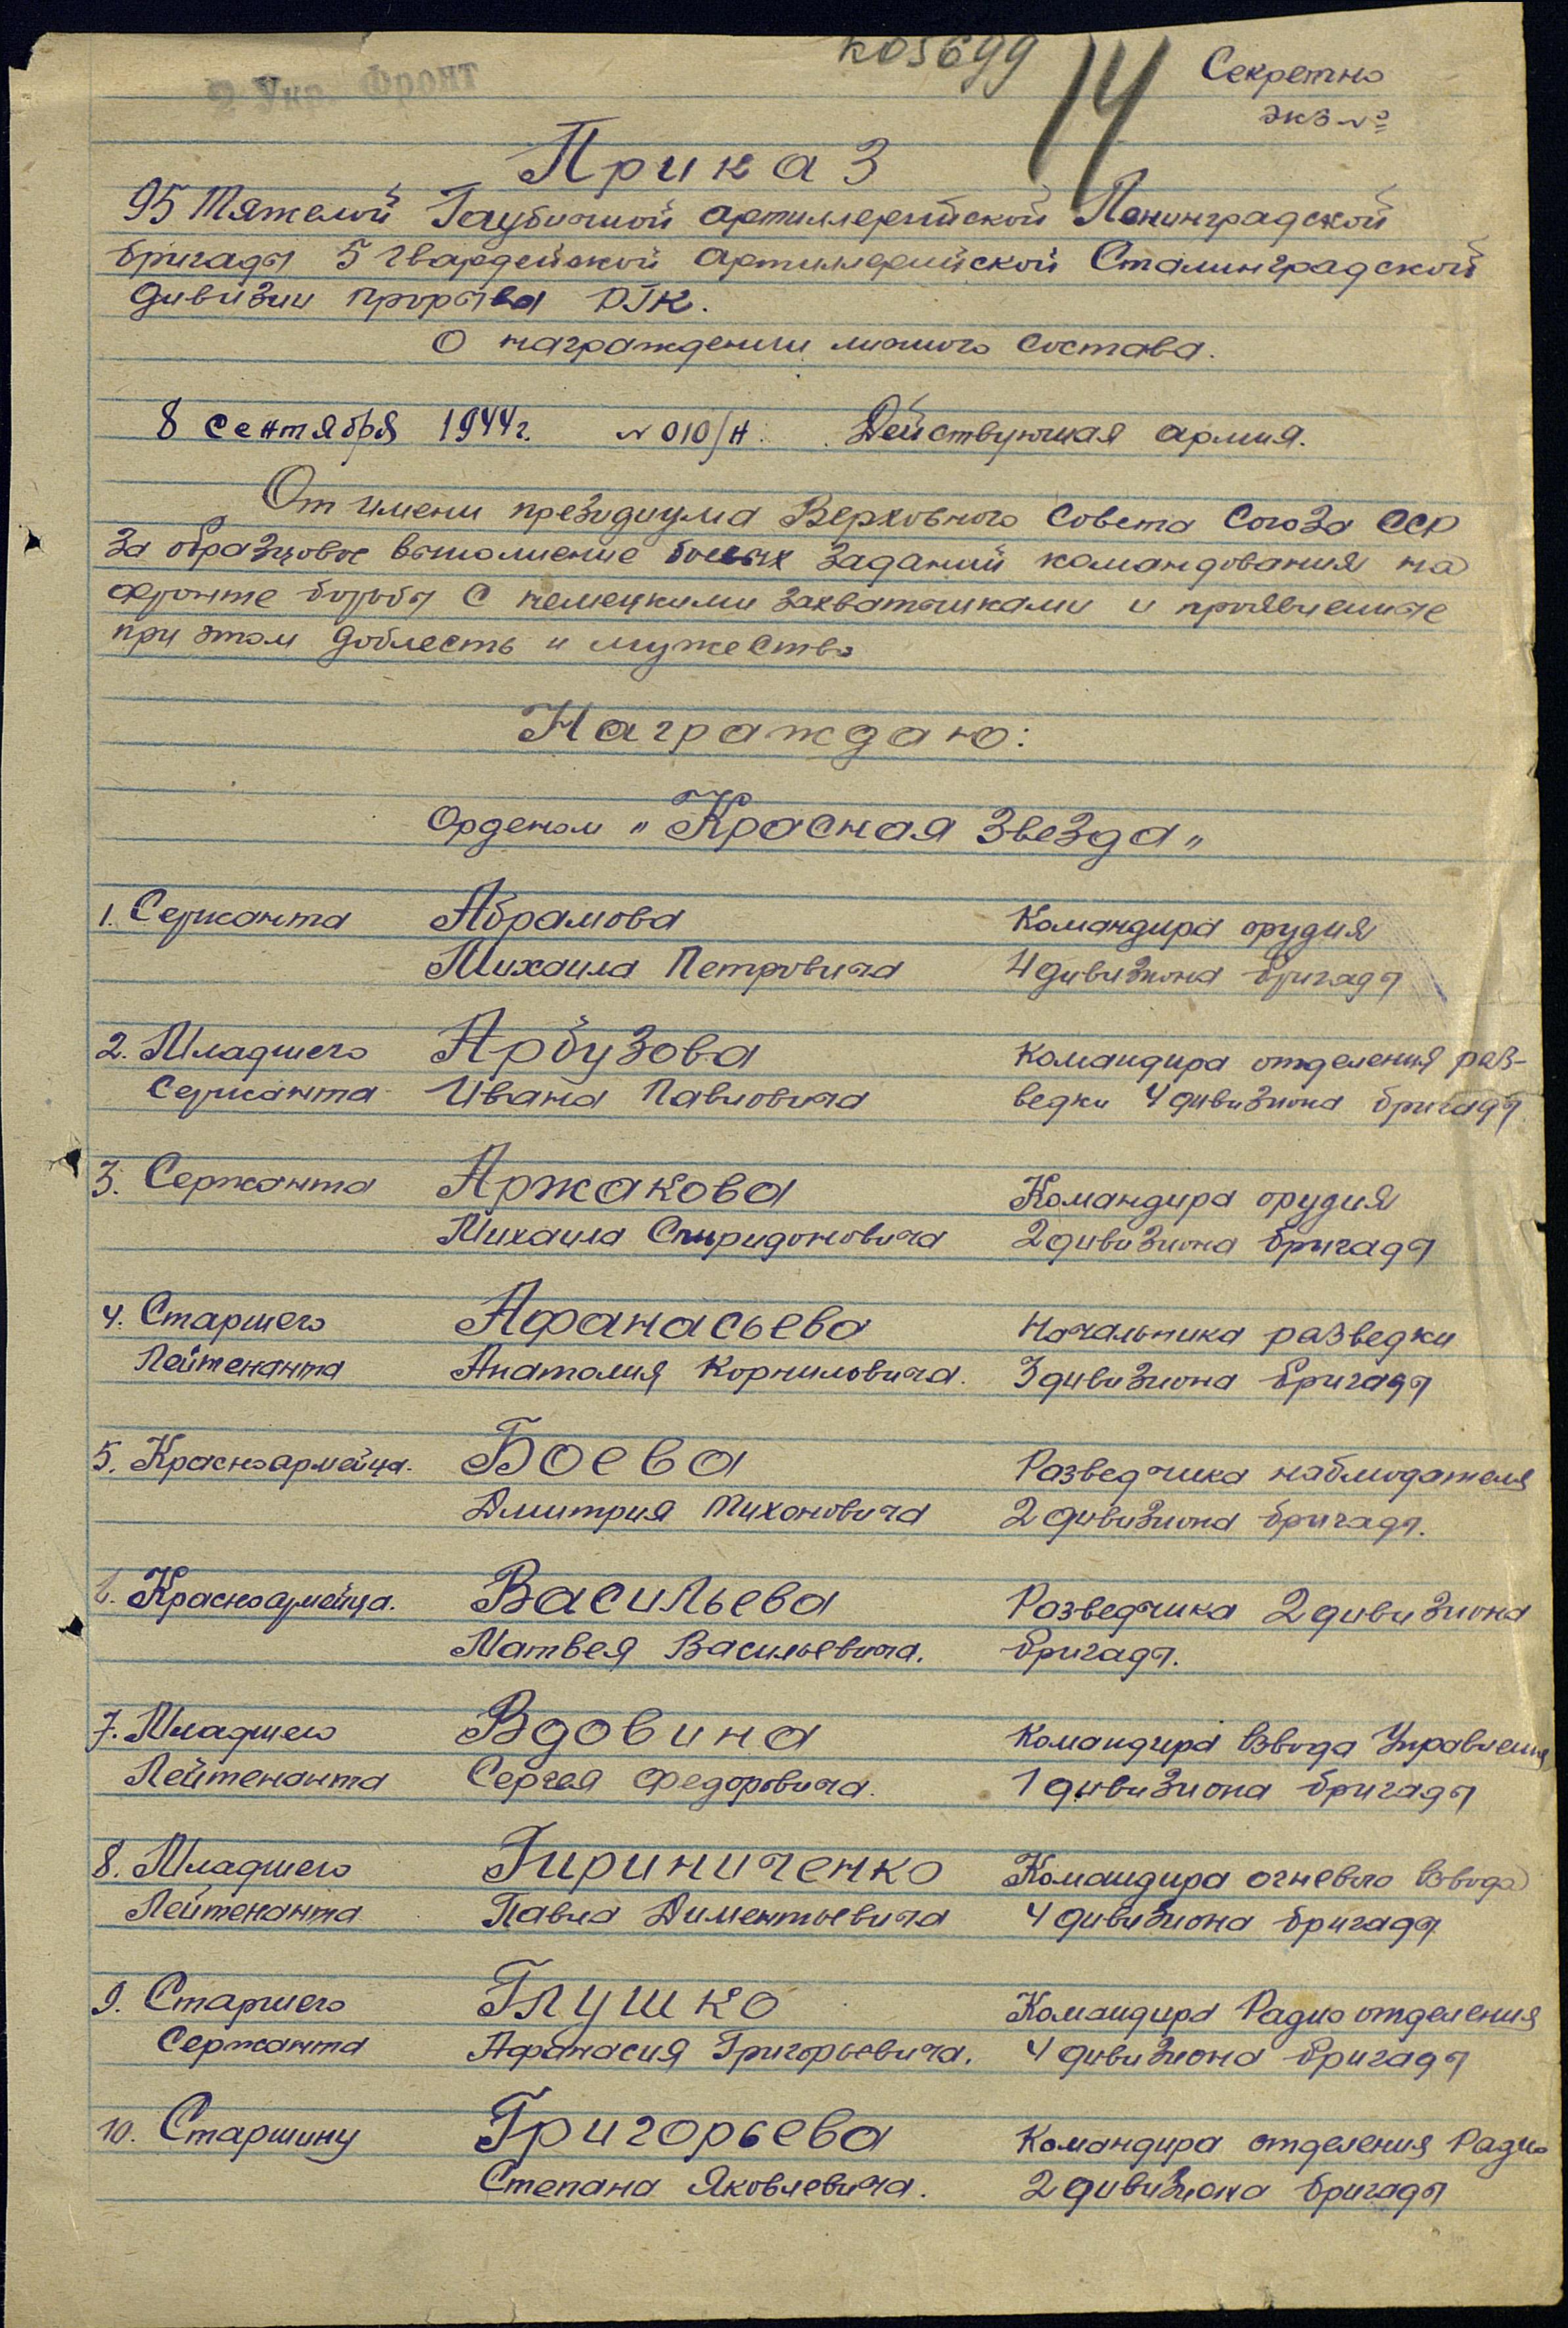 2 Укр. Фронт
К05699
14
Секретно
экз №
Приказ
95 Тяжелой Гаубичной артиллерийской Ленинградской
бригады 5 гвардейской артиллерийской Сталинградской
дивизии прорыва РГК.
О награждении личного состава.
8 сентября 1944г. № 010/н. Действующая армия.
От имени президиума Верховного Совета Союза ССР
за образцовое выполнение боевых заданий командования на
фронте борьбы с немецкими захватчиками и проявленные
при этом доблесть и мужество
Награждаю:
Орденом "Красная Звезда"
1. Сержанта Абрамова Командира орудия
Михаила Петровича 4 дивизиона бригады
2. Младшего Арбузова Командира отделения раз-
Сержанта Ивана Павловича ведки 4 дивизиона бригады.
3. Сержанта Аржакова Командира орудия
Михаила Спиридоновича 2 дивизиона бригады
4. Старшего Афанасьева Начальника разведки
Лейтенанта Анатолия Корниловича. 3 дивизиона бригады
5. Красноармейца. Боева Разведчика наблюдателя
Дмитрия Тихоновича 2 дивизиона бригады.
6. Красноармейца. Васильева Разведчика 2 дивизиона
Матвея Васильевича. бригады.
7. Младшего Вдовина Командира взвода Управления
Лейтенанта Сергея Федоровича. 1 дивизиона бригады
8. Младшего Гириниченко Командира огневого взвода
Лейтенанта Павла Диментьевича 4 дивизиона бригады
9. Старшего Глушко Командира Радио отделения
Сержанта Афанасия Григорьевича. 4 дивизиона бригады
10. Старшину Григорьева Командира отделения Радио
Степана Яковлевича. 2 дивизиона бригады